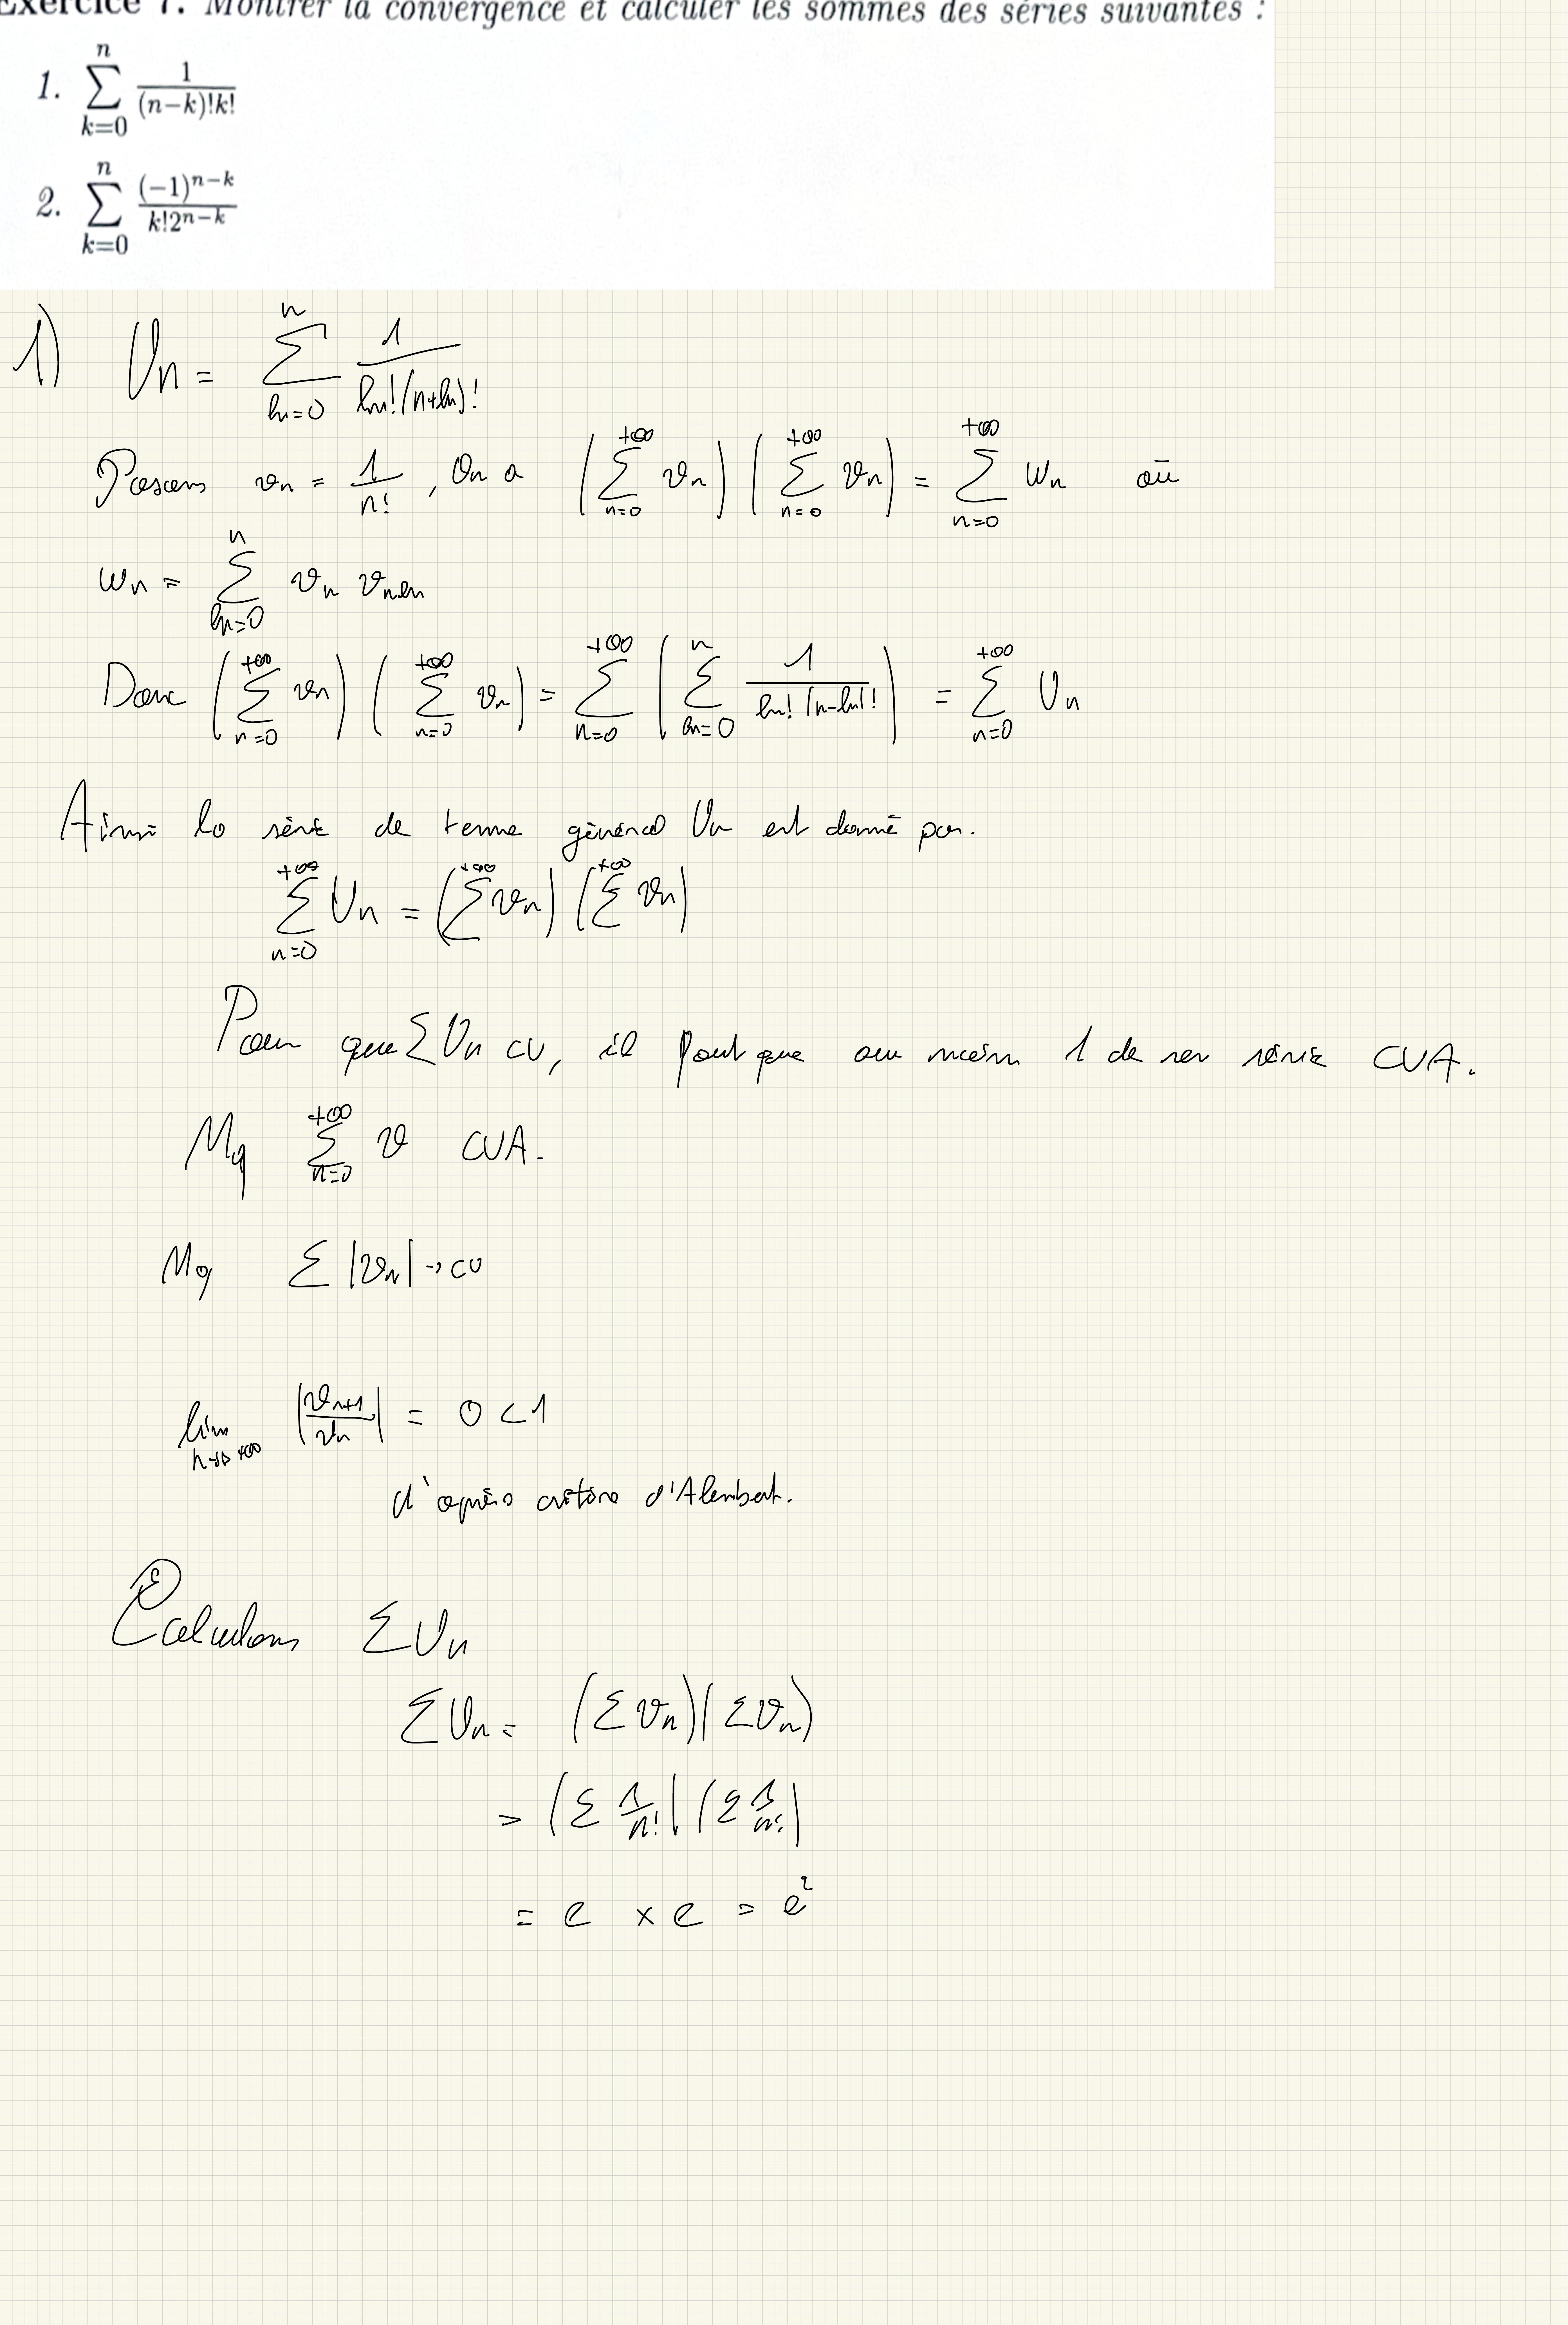 Exercice 7. Montrer la convergence et calculer les sommes des séries suivantes :
1. \sum_{k=0}^{n} \frac{1}{(n-k)!k!}
2. \sum_{k=0}^{n} \frac{(-1)^{n-k}}{k!2^{n-k}}
1) U_n = \sum_{k=0}^{n} \frac{1}{k!(n+k)!}
Posons v_n = \frac{1}{n!}, On a (\sum_{n=0}^{+\infty} v_n)(\sum_{n=0}^{+\infty} v_n) = \sum_{n=0}^{+\infty} w_n où
w_n = \sum_{k=0}^{n} v_n v_{n-k}
Donc (\sum_{n=0}^{+\infty} v_n)(\sum_{n=0}^{+\infty} v_n) = \sum_{n=0}^{+\infty} (\sum_{k=0}^{n} \frac{1}{k!(n-k)!}) = \sum_{n=0}^{+\infty} U_n
Ainsi la série de terme général U_n est donné par.
\sum_{n=0}^{+\infty} U_n = (\sum^{+\infty} v_n)(\sum^{+\infty} v_n)
Pour que \sum U_n cv, il faut que au moins 1 de ses série CVA.
Mq \sum_{n=0}^{+\infty} v CVA.
Mq \sum |v_n| → cv
\lim_{n→+\infty} |\frac{v_{n+1}}{v_n}| = 0 < 1
d'après critère d'Alembert.
Calculons \sum U_n
\sum U_n = (\sum v_n)(\sum v_n)
= (\sum \frac{1}{n!})(\sum \frac{1}{n!})
= e × e = e^2